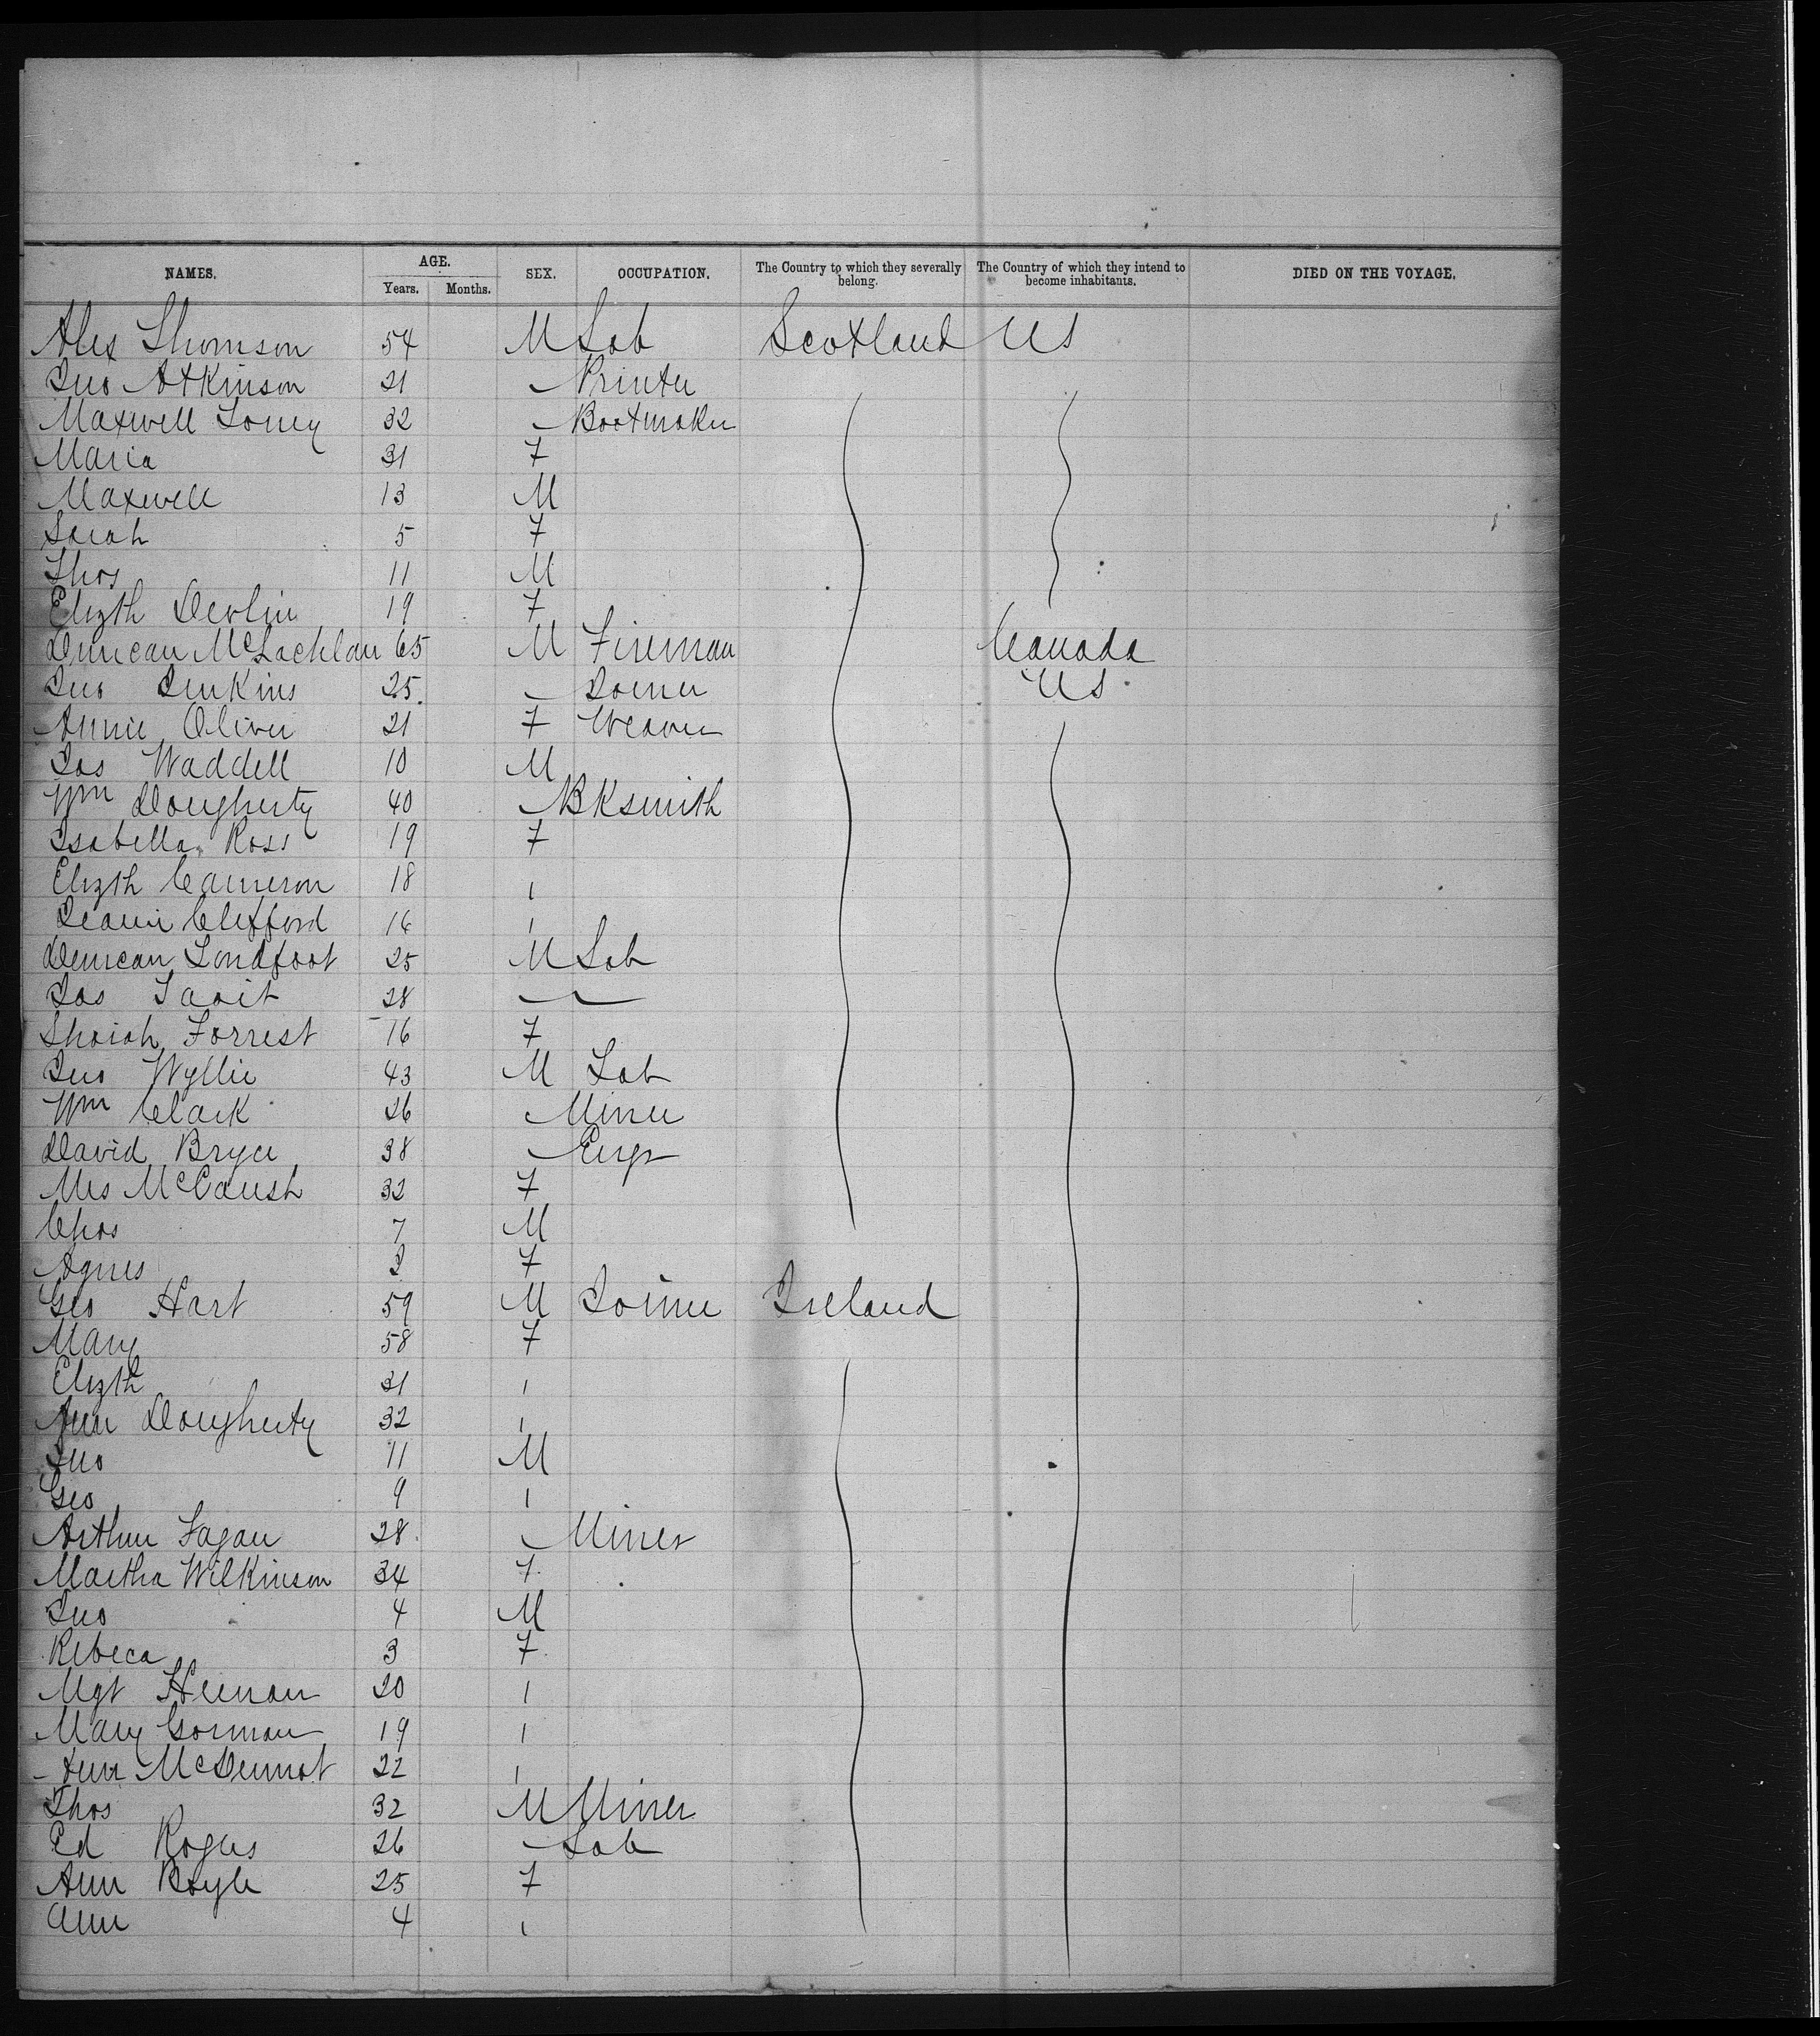 NAMES. AGE. SEX. OCCUPATION. The Country to which they severally belong. The Country of which they intend to become inhabitants. DIED ON THE VOYAGE.
Years. Months.
Alex Thomson 54 M Lab Scotland US
Jno Atkinson 21 Printer
Maxwell Loney 32 Bootmaker
Maria 31 F
Maxwell 13 M
Sarah 5 F
Thos 11 M
Elizth Devlin 19 F
Duncan McLachlan 65 M Fireman Canada
Jno Jenkins 25 Joiner US
Annie Oliver 21 F Weaver
Jas Waddell 10 M
Wm Dougherty 40 Bksmith
Isabella Ross 19 F
Elizth Cameron 18 "
Jeanie Clifford 16 "
Duncan Londfoot 25 M Lab
Jas Tait 28
Forrest 16 F
Jno Wyllie 43 M Lab
Wm Clark 26 Miner
David Bryce 38 Engr
Mrs McCaush 32 F
Chas 7 M
Agnes 2 F
Geo Hart 59 M Joiner Ireland
Mary 58 F
Elizth 21 "
Ann Dougherty 32 "
Jno 11 M
Geo 9 "
Arthur Fagan 28 Miner
Martha Wilkinson 34 F
Jno 4 M
Rebeca 3 F
Mgt Heenan 20 "
Mary Gorman 19 "
Ann McDermot 22 "
Thos 32 M Miner
Ed Rogers 26 Lab
Ann Boyle 25 F
Ann 4 "